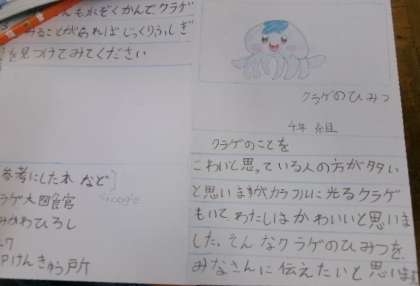 クラゲのひみつ
4年 組
クラゲのことを
こわいと思っている人の方が多い
と思いますがカラフルに光るクラゲ
もいてわたしはかわいいと思いま
した。そんなクラゲのひみつを、
みなさんに伝えたいと思います
んも水ぞくかんで、クラゲ
ることがあればじっくりふしぎ
を見つけてみてください
参考にした本 など
ラゲ大図館
Google
みかわひろし
けんきゅう所